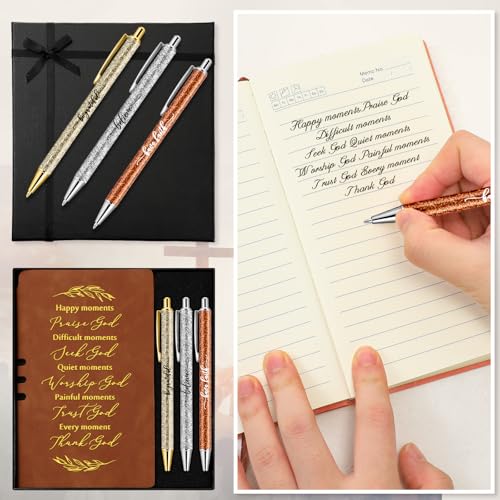 believe
Have Faith
Memo No.
Date
Happy moments,Praise God
Difficult moments
Seek God Quiet moments
Worship God Painful moments
Trust God Every moment
Thank God
Happy moments
Praise God
Difficult moments
Seek God
Quiet moments
Worship God
Painful moments
Trust God
Every moment
Thank God
believe